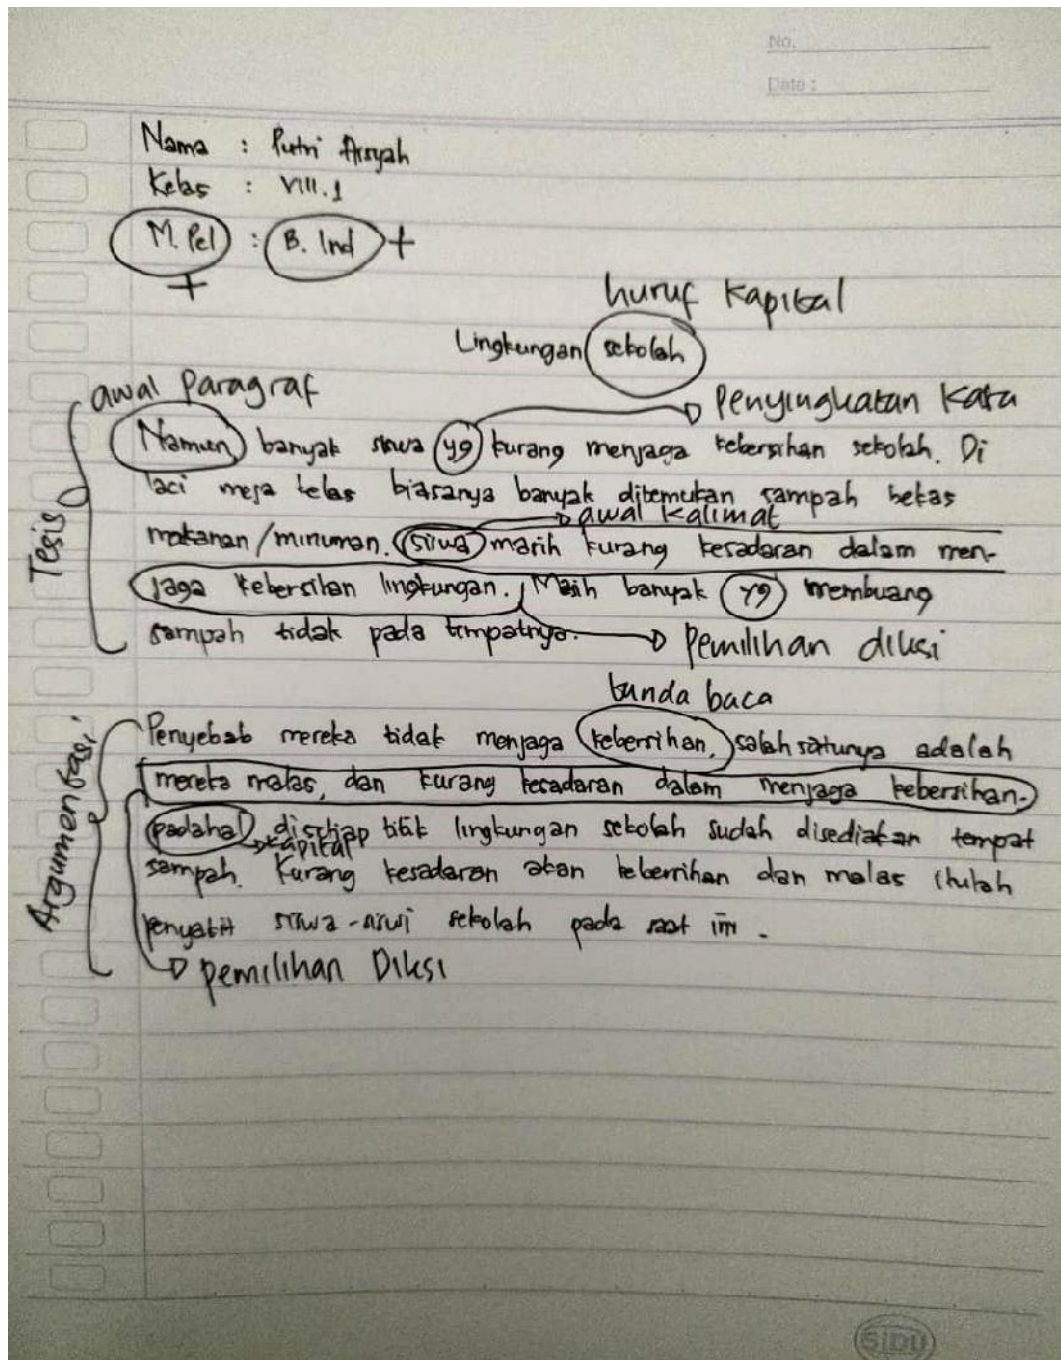 No.
Date :
Nama : Putri Arsyah
Kelas : VIII.1
M. Pel : B. Ind +
+
huruf Kapital
Lingkungan sekolah
awal Paragraf
Penyingkatan Kata
Namun banyak siswa yg kurang menjaga kebersihan sekolah. Di
laci meja kelas biasanya banyak ditemukan sampah bekas
awal Kalimat
makanan/minuman. siswa masih kurang kesadaran dalam men-
jaga kebersihan lingkungan. Masih banyak yg membuang
sampah tidak pada tempatnya.
Pemilihan diksi
Tesis
tanda baca
Penyebab mereka tidak menjaga kebersihan, salah satunya adalah
mereka malas, dan kurang kesadaran dalam menjaga kebersihan.
padahal disetiap titik lingkungan sekolah sudah disediakan tempat
kapital
sampah. Kurang kesadaran akan kebersihan dan malas itulah
penyakit siswa-siswi sekolah pada saat ini.
Pemilihan Diksi
Argumentasi
SIDU